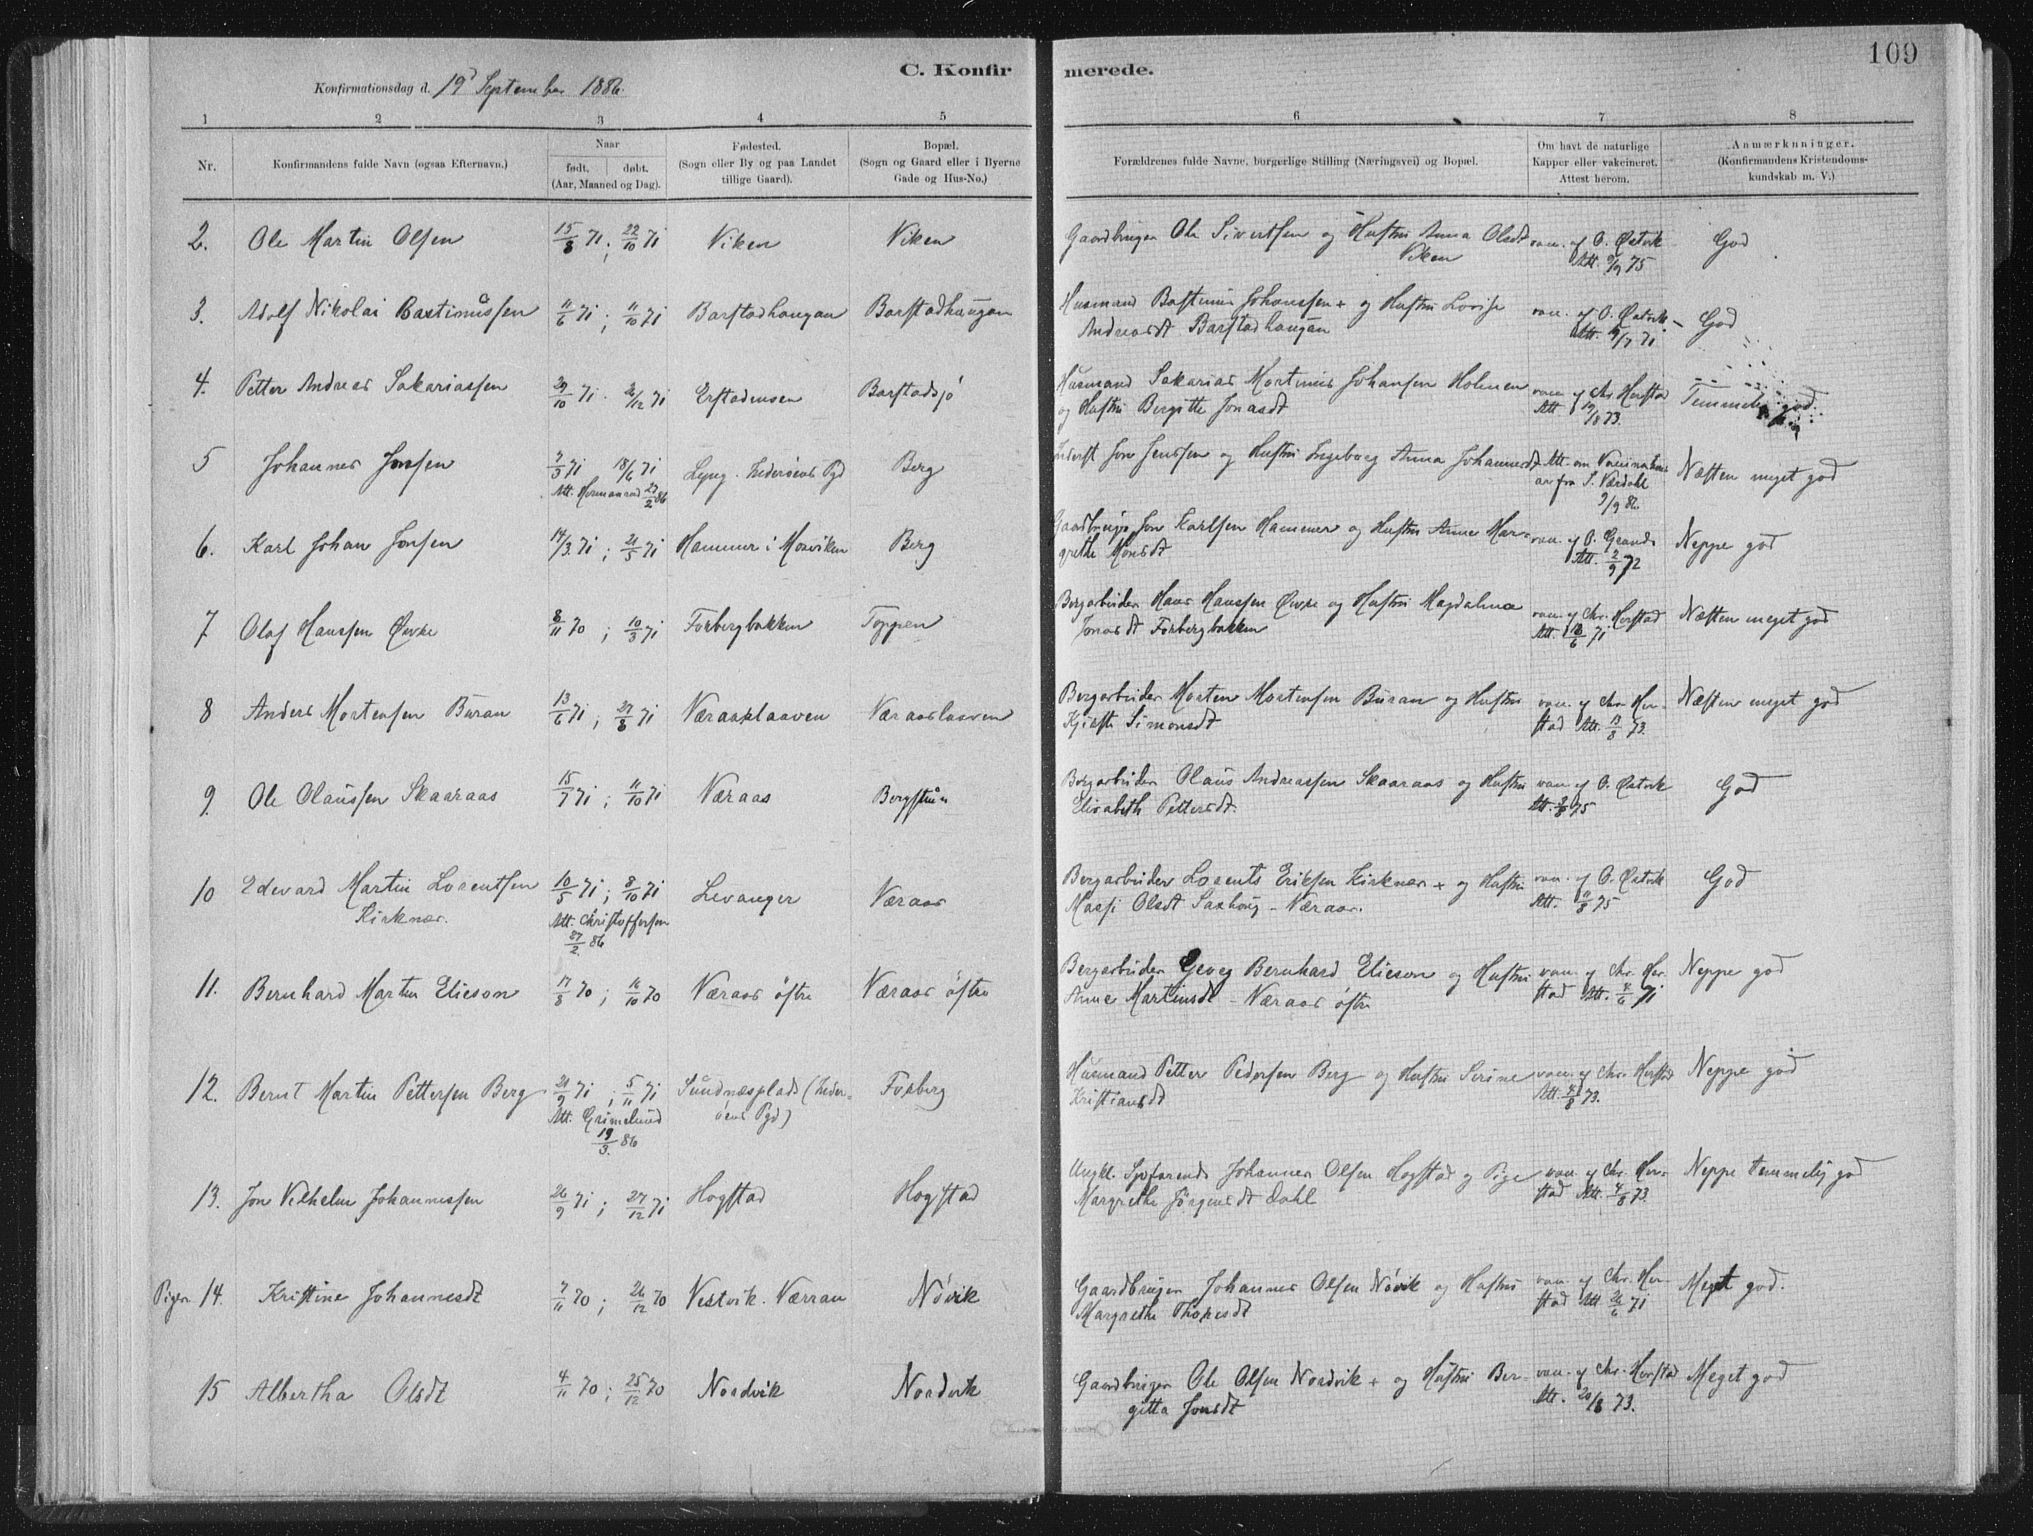 109
C. Konfirmerede.
Konfirmationsdag d. 19d September 1886.
1 2 3 4 5 6 7 8
Nr. Konfirmandens fulde Navn (ogsaa Efternavn.) Naar født, døbt. (Aar, Maaned og Dag). Fødested. (Sogn eller By og paa Landet tillige Gaard). Bopæl. (Sogn og Gaard eller i Byerne Gade og Hus-No.) Forældrenes fulde Navne, borgerlige Stilling (Næringsvei) og Bopæl. Om havt de naturlige Kapper eller vakcineret. Attest herom. Anmærkninger. (Konfirmandens Kristendomskundskab m. V.)
2. Ole Martin Olsen 15/8 71; 22/10 71 Viken Viken Gaardbruger Ole Sivertsen og Hustru Anna Olsdt vac. af O. Østvik God
Viken Att. 9/9 75
3. Adolf Nikolai Bastinussen 11/6 71; 11/10 71 Barstadhaugan Barstadhaugan Husmand Bastinus Johanssen + og Hustru Lovise vac. af O. Østvik God
Andreasdt Barstadhaugan
4. Petter Andreas Sakariassen 29/10 71. 26/12 71 Barstadsjö Husmand Sakarias Martinus Johansen Holmen vac. af Chr. Herstad Temmelig god.
og Hustru Bergitte Jonasdt Att 19/8 73.
5 Johannes Jonsen 18/6 71 Inderøens Pgd Berg Jon Jenssen og Hustru Ingeborg Anna Johannesdt Att. om Næsten meget god
fra S. Værdahl
9/9 86
6. Karl Johan Jonsen 14/3. 71; 21/5 71 Hammer i Mosviken Berg Gaardbruger Jon Karlsen Hammer og Hustru Anne Mar- vac. af O. Neppe god
grethe Monsdt Att. 2/9 72
7 Olaf Hanssen Øvre 8/11 70; 10/3 71 Forbergbakken Toppen Bergarbeider Hans Hanssen Øvre og Hustru Magdalena vac. af Chr. Herstad Næsten meget god
Jonasdt Forbergbakken Att. 18/6 71
8 Anders Mortensen Buran 13/6 71; 27/8 71 Væraaslaaven Væraaslaaven Bergarbeider Morten Mortensen Buran og Hustru vac. af Chr. Her- Næsten meget god
Simonsdt stad Att. 13/8 73.
9. Ole Olaussen Skaaraas 15/7 71; 11/10 71 Væraas Bergstuen Bergarbeider Olaus Andreassen Skaaraas og Hustru vac. af O. Østvik God
Elisabeth Pettersdt.
10 Edevard Martin Lorentsen 10/5 71; 8/10 71 Levanger Væraas Bergarbeider Lorents Eriksen Kirknes + og Hustru vac. af O. Østvik God
Kirknes. Att. Christoffersen 27/2. 86 Massi Olsdt Saxhoug - Væraas. Att. 11/8 75
11. Bernhard Martin Elieson 17/8 70; 16/10 70 Væraas östre Væraas östre Bergarbeider Georg Bernhard Elieson og Hustru vac. af Chr. Her- Neppe god
Anne Martinsdt - Væraas östre stad Att. 4/6 71
12. Bernt Martin Pettersen Berg 21/9 71; 5/11 71 Sundnæsplads (Inder- Forberg Husmand Petter Pedersen Berg og Hustru Serine vac. af Chr. Herstad Neppe god
Att. Grimelund 19/3. 86 öens Pgd) Kristiansdt Att. 4/8 73.
13. Jon Vilhelm Johannessen 26/9 71; 27/12 71 Hogstad Hogstad Ungkl. Sjofarende Johannes Olsen Hogstad og Pige vac. af Chr. Her- Neppe temmelig god
Margrethe Jörgensdt Dahl stad Att. 4/8 73.
Piger 14. Kristine Johannesdt 7/11 70; 26/12 70 Vestvik. Værran Növik Gaardbruger Johannes Olsen Növik og Hustru vac. af Chr. Her- Meget god.
Margrethe Thoresdt stad Att 26/6 71
15 Albertha Olsdt 4/11 70; 25/12 70 Nordvik Nordvik Gaardbruger Ole Olsen Nordvik + og Hustru Ber- vac. af Chr. Herstad Meget god
gitta Jonsdt Att. 20/8 73.